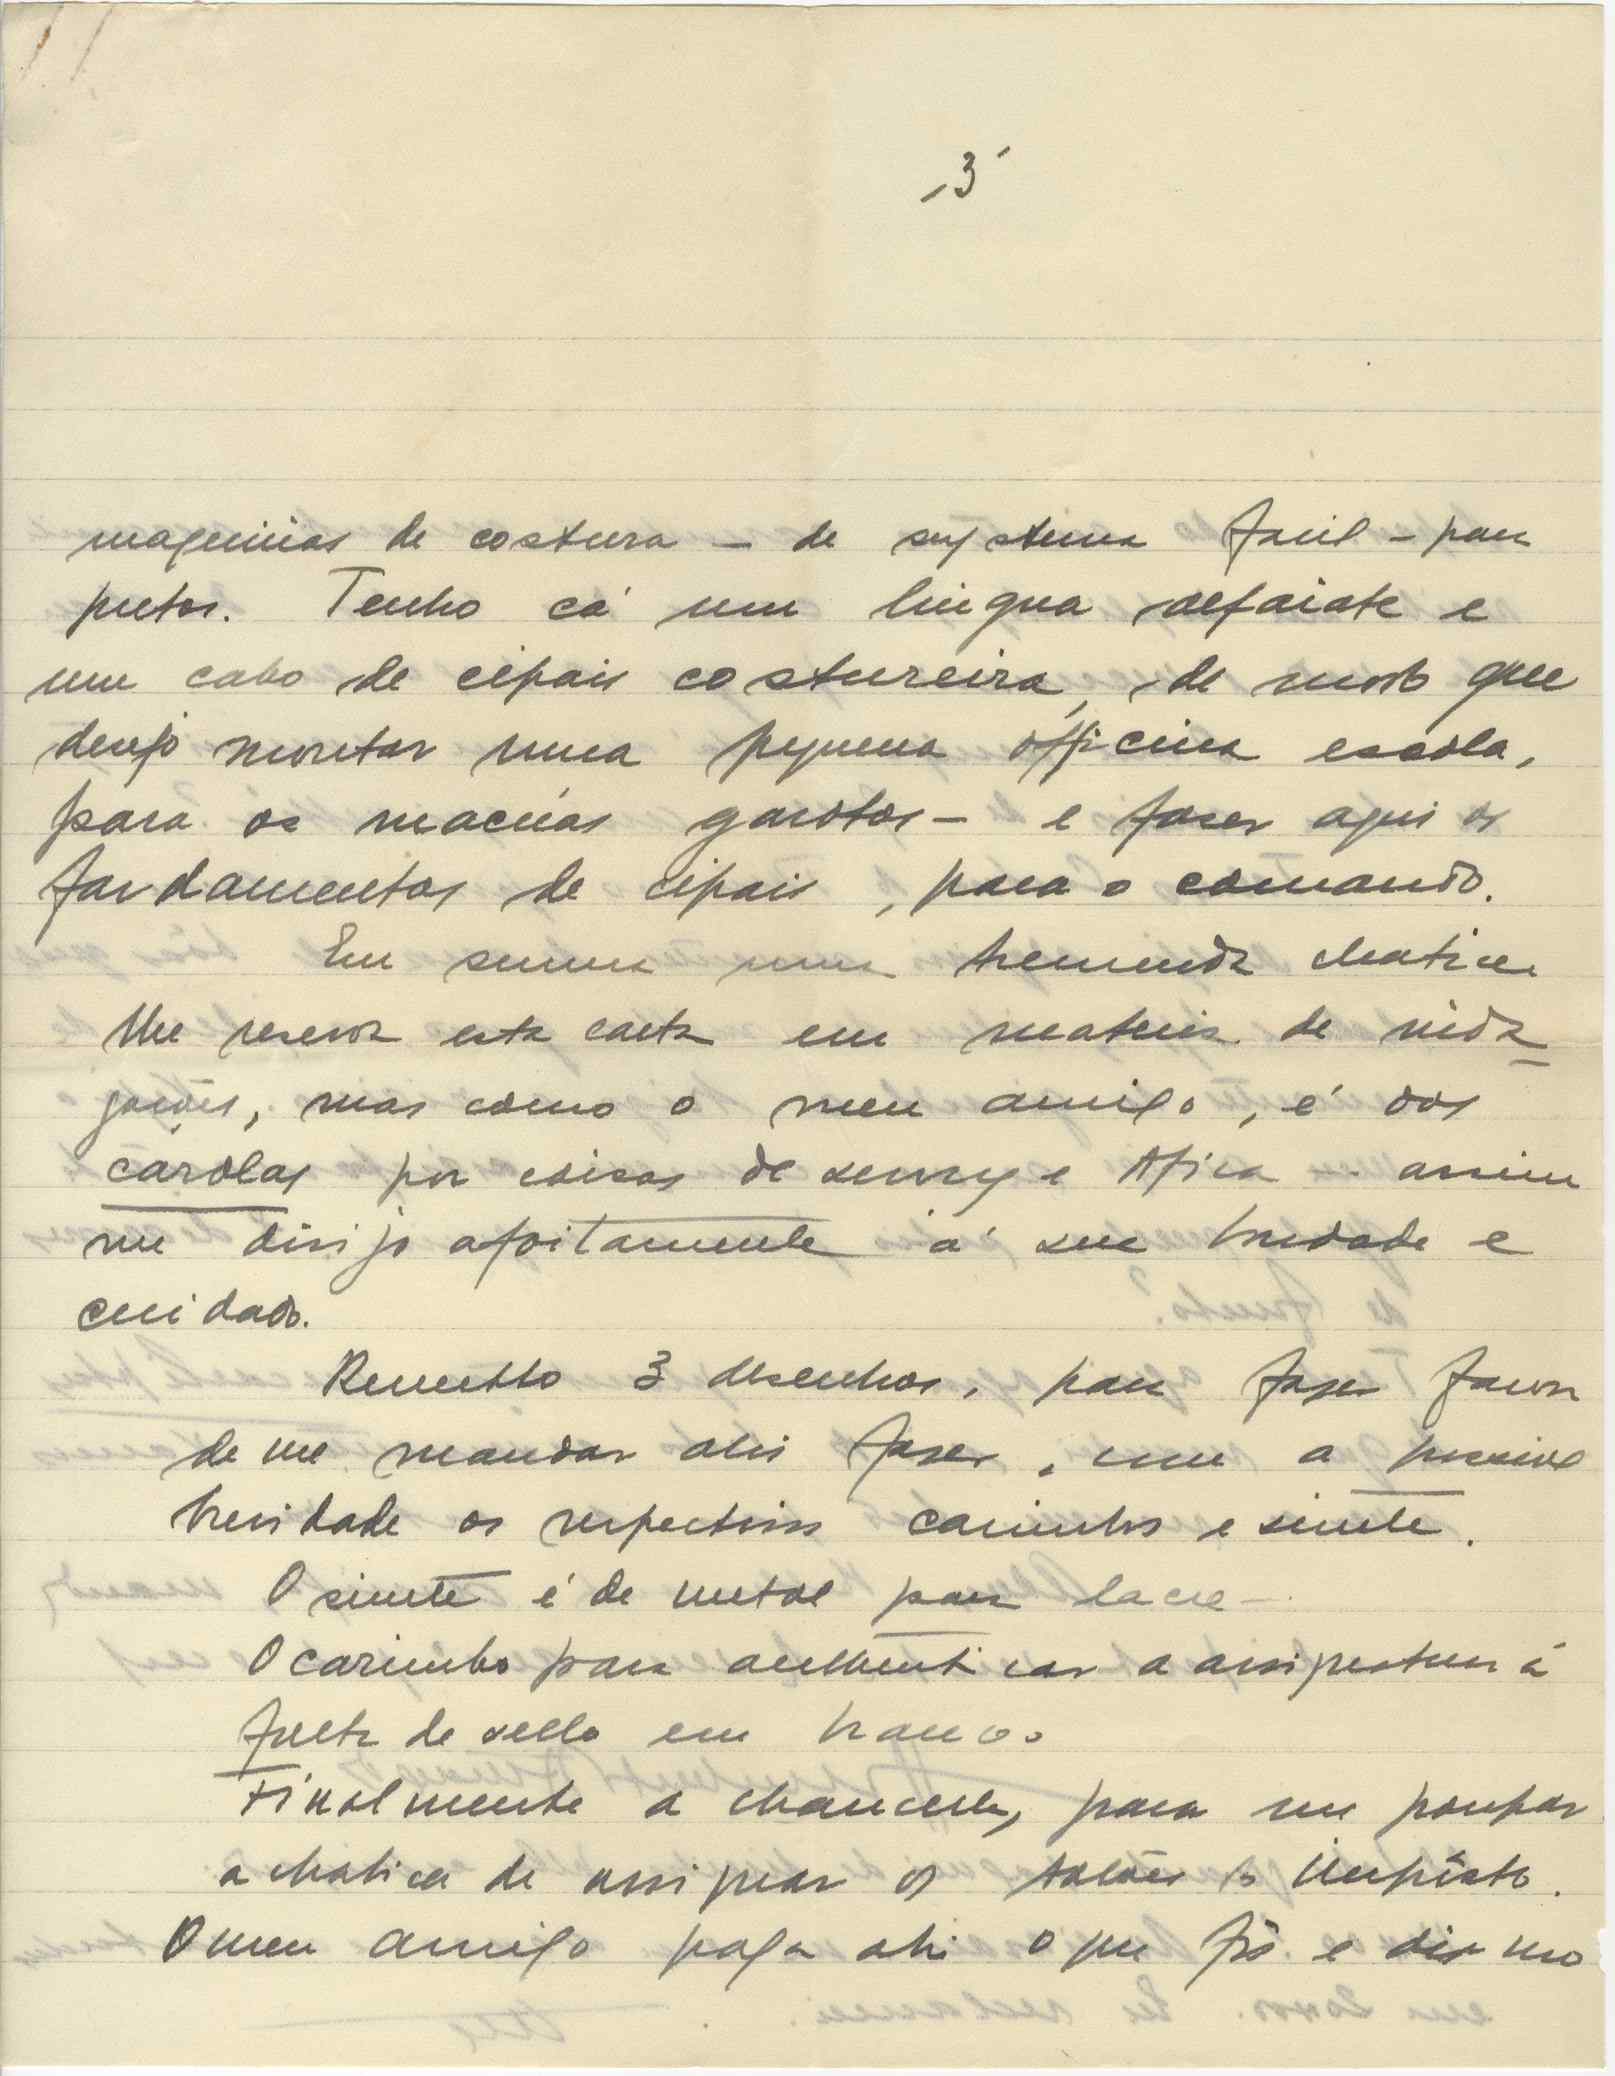 3
maquinas de costura — de systema facil — para
pretos. Tenho cá um lingua alfaiate e
um cabo de cipais costureira, de modo que
desejo montar uma pequena officina escola,
para os macúas garotos — e fazer aqui os
fardamentos de cipais, para o comando.
Em summa uma tremenda chatice
lhe reserva esta carta em materia de
mas como o meu amigo, é dos
carolas por coisas de Africa — assim
me dirijo afoitamente á sua bondade e
cuidado.
Remetto 3 desenhos, para fazer favor
de me mandar ahi fazer, com a possivel
brevidade os respectivos carimbos e sinete.
O sinete é de metal para lacre —
O carimbo para authenticar a assignatura á
falta de sello em branco.
Finalmente a chancella, para me poupar
a chatice de assignar os talões do imposto.
O meu amigo paga ahi o que fôr e diz-mo